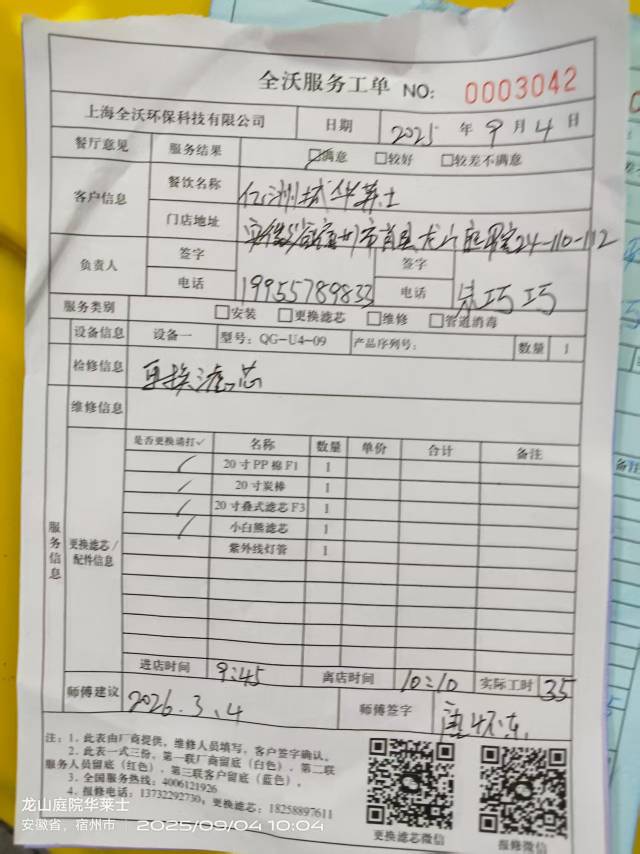 全沃服务工单 NO: 0003042
上海全沃环保科技有限公司 日期 2025 年 9 月 4 日
餐厅意见 服务结果 ☑满意 □较好 □较差不满意
客户信息 餐饮名称 华莱士
门店地址 24-110-112
负责人 签字 签字
电话 19955789833 电话 巧巧
服务类别 □安装 □更换滤芯 □维修 □管道消毒
设备信息 设备一 型号: QG-U4-09 产品序列号: 数量 1
检修信息 更换滤芯
维修信息
服务信息 更换滤芯/配件信息
是否更换请打✓ 名称 数量 单价 合计 备注
✓ 20寸PP棉F1 1
✓ 20寸炭棒 1
✓ 20寸叠式滤芯F3 1
✓ 小白熊滤芯 1
紫外线灯管 1
进店时间 9:45 离店时间 10:10 实际工时 35
师傅建议 2026.3.4 师傅签字
注: 1. 此表由厂商提供, 维修人员填写, 客户签字确认。
2. 此表一式三份, 第一联厂商留底(白色), 第二联
服务人员留底(红色), 第三联客户留底(蓝色)。
3. 全国服务热线: 4006121926
4. 报修电话: 13732292730, 更换滤芯: 18258897611
更换滤芯微信 报修微信
龙山庭院华莱士
安徽省, 宿州市 2025/09/04 10:04